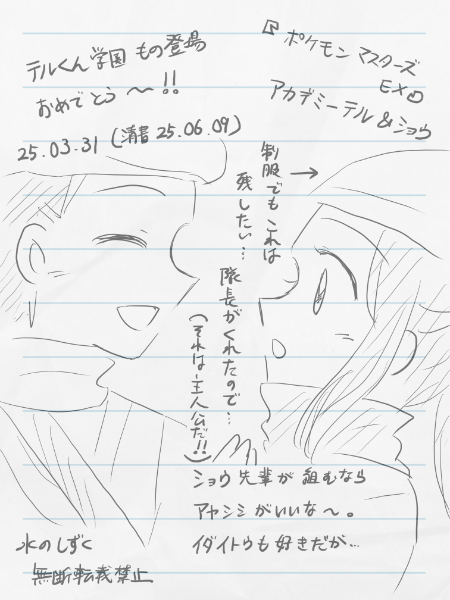 テルくん学園もの登場
おめでとう〜!!
25.03.31(清書25.06.09)
『ポケモンマスターズ
EX』
アカデミーテル&ショウ
制服でもこれは
残したい…
→
隊長がくれたので…
(それは主人公だ!!)
ショウ先輩が組むなら
アヤシシがいいな〜。
イダイトウも好きだが…
水のしずく
無断転載禁止